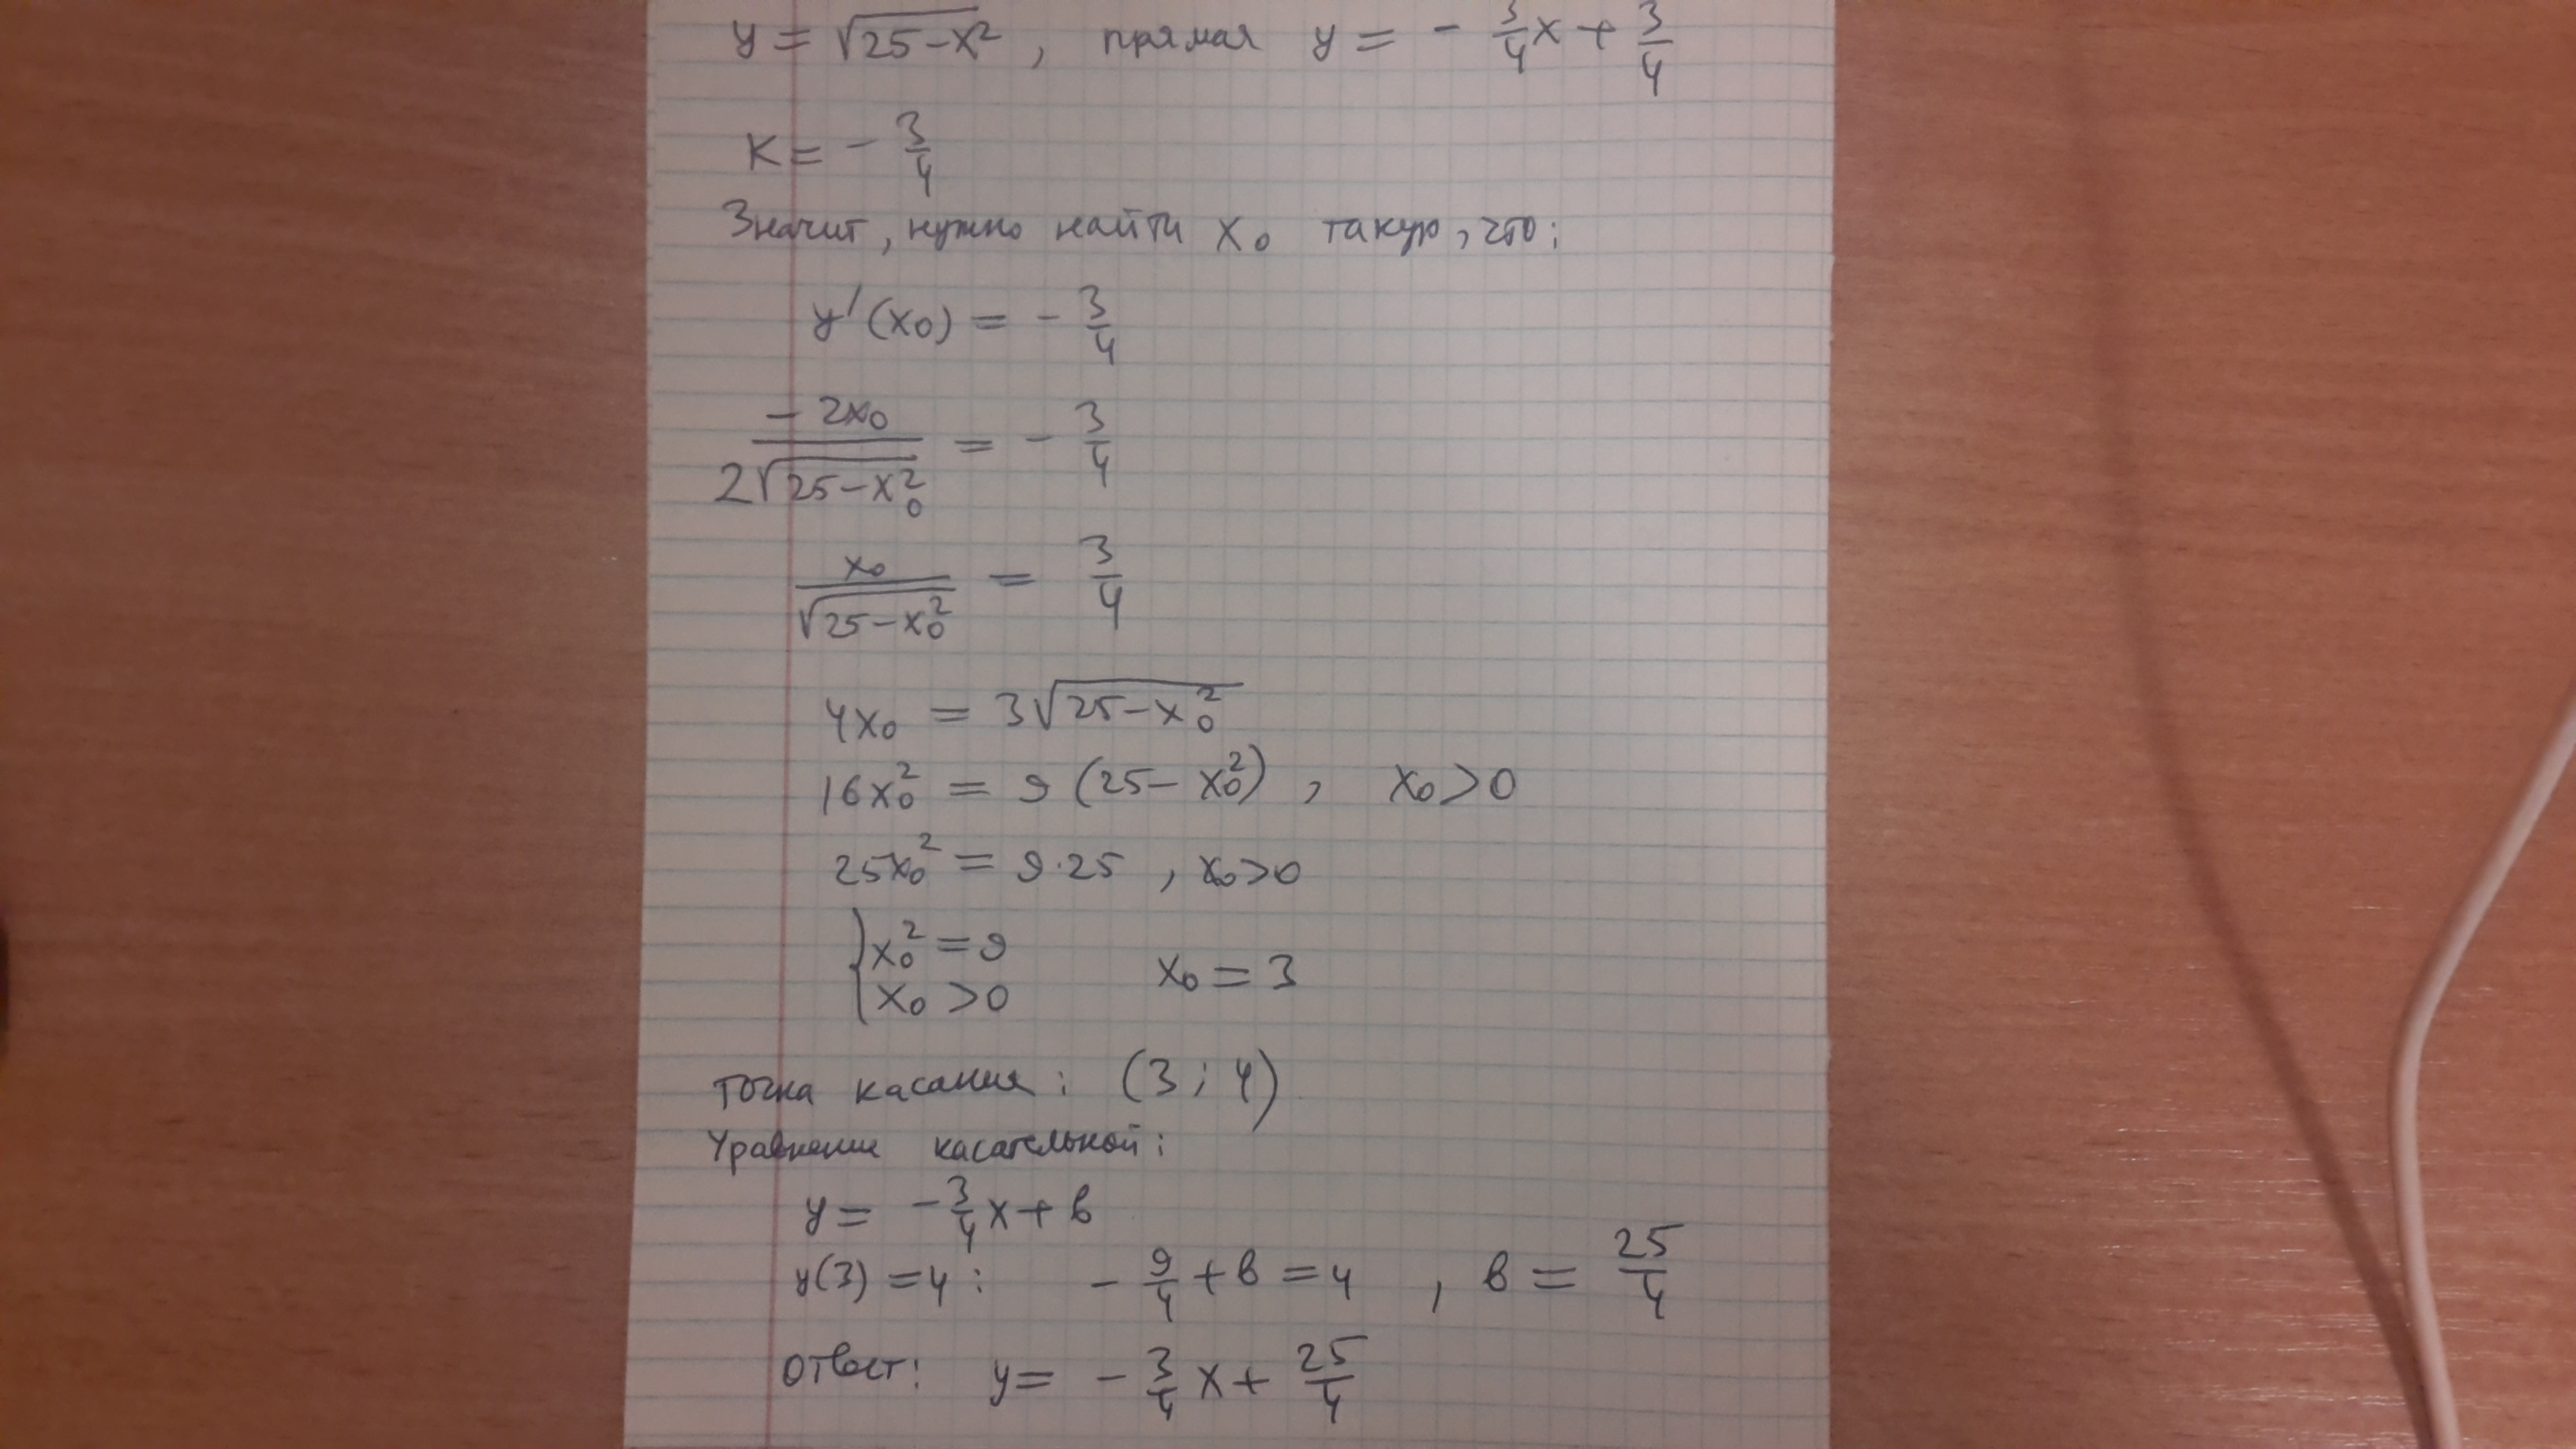 y = √25-x², прямая y = - 3/4 x + 3/4
K = - 3/4
Значит, нужно найти x₀ такую, что:
y'(x₀) = - 3/4
- 2x₀ / 2√25-x₀² = - 3/4
x₀ / √25-x₀² = 3/4
4x₀ = 3√25-x₀²
16x₀² = 9 (25-x₀²), x₀>0
25x₀² = 9·25, x₀>0
{ x₀² = 9
x₀ > 0 x₀ = 3
точка касания: (3; 4)
Уравнение касательной:
y = - 3/4 x + в
y(3) = 4: - 9/4 + в = 4, в = 25/4
ответ: y = - 3/4 x + 25/4